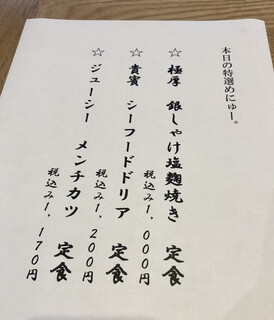 本日の特選めにゅー。
☆ 極厚 銀しゃけ塩麹焼き 定食
税込み1,000円
☆ 貴賓 シーフードドリア 定食
税込み1,200円
☆ ジューシー メンチカツ 定食
税込み1,170円